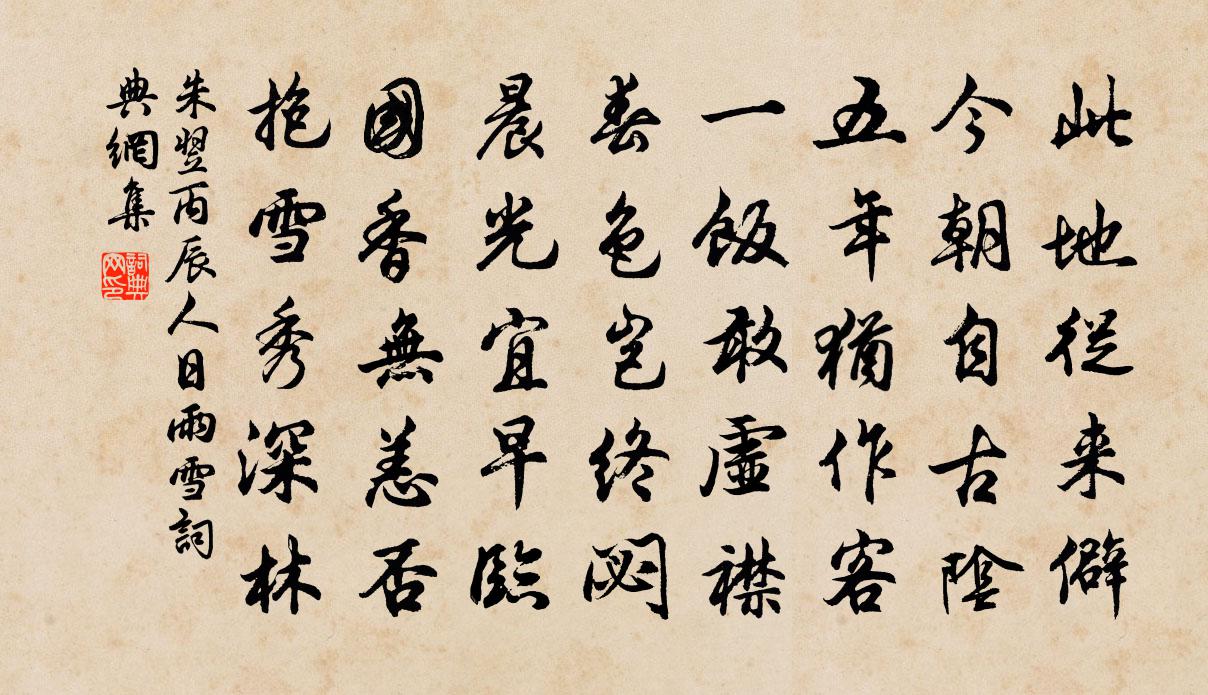 此地從来僻
今朝自古陰
五年猶作客
一飯敢虛襟
春色豈終閟
晨光宜早臨
國香無恙否
抱雪秀深林
朱翌丙辰人日雨雪詞
典網集
詞典
网印